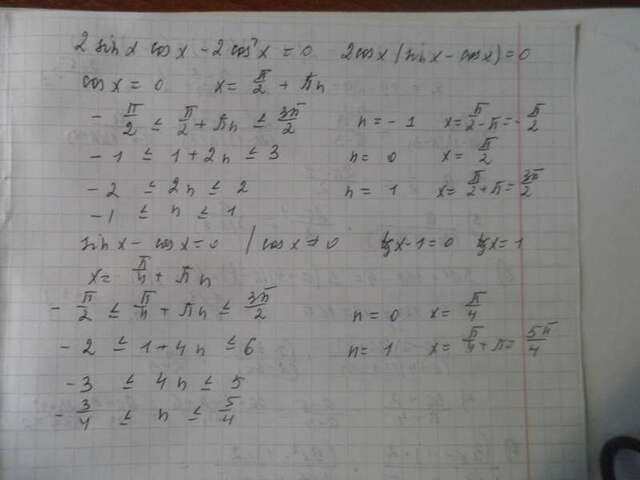 2 sin x cos x - 2cos² x = 0   2cos x (sin x - cos x) = 0
cos x = 0   x = π/2 + πn
- π/2 ≤ π/2 + πn ≤ 3π/2   n = -1   x = π/2 - π = - π/2
-1 ≤ 1 + 2n ≤ 3   n = 0   x = π/2
-2 ≤ 2n ≤ 2   n = 1   x = π/2 + π = 3π/2
-1 ≤ n ≤ 1
sin x - cos x = 0 | cos x ≠ 0   tg x - 1 = 0   tg x = 1
x = π/4 + πn
- π/2 ≤ π/4 + πn ≤ 3π/2   n = 0   x = π/4
-2 ≤ 1 + 4n ≤ 6   n = 1   x = π/4 + π = 5π/4
-3 ≤ 4n ≤ 5
- 3/4 ≤ n ≤ 5/4